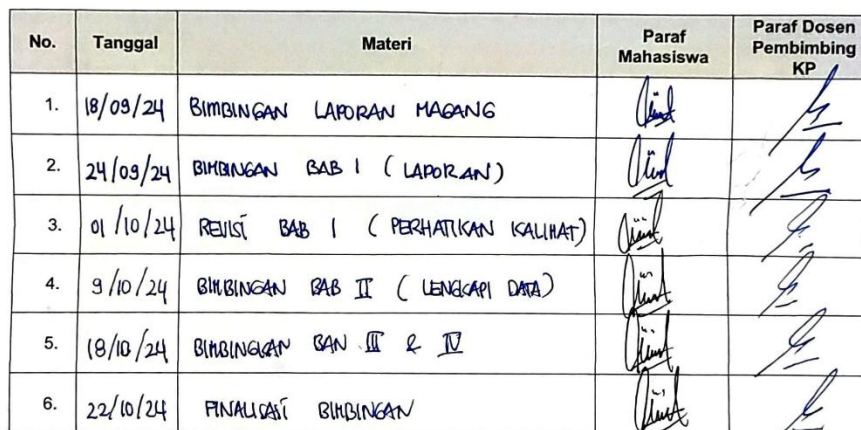 No. Tanggal Materi Paraf Mahasiswa Paraf Dosen Pembimbing KP
1. 18/09/24 BIMBINGAN LAPORAN MAGANG
2. 24/09/24 BIMBINGAN BAB I (LAPORAN)
3. 01/10/24 REVISI BAB I (PERHATIKAN KALIMAT)
4. 9/10/24 BIMBINGAN BAB II (LENGKAPI DATA)
5. 18/10/24 BIMBINGAN BAN III & IV
6. 22/10/24 FINALISASI BIMBINGAN